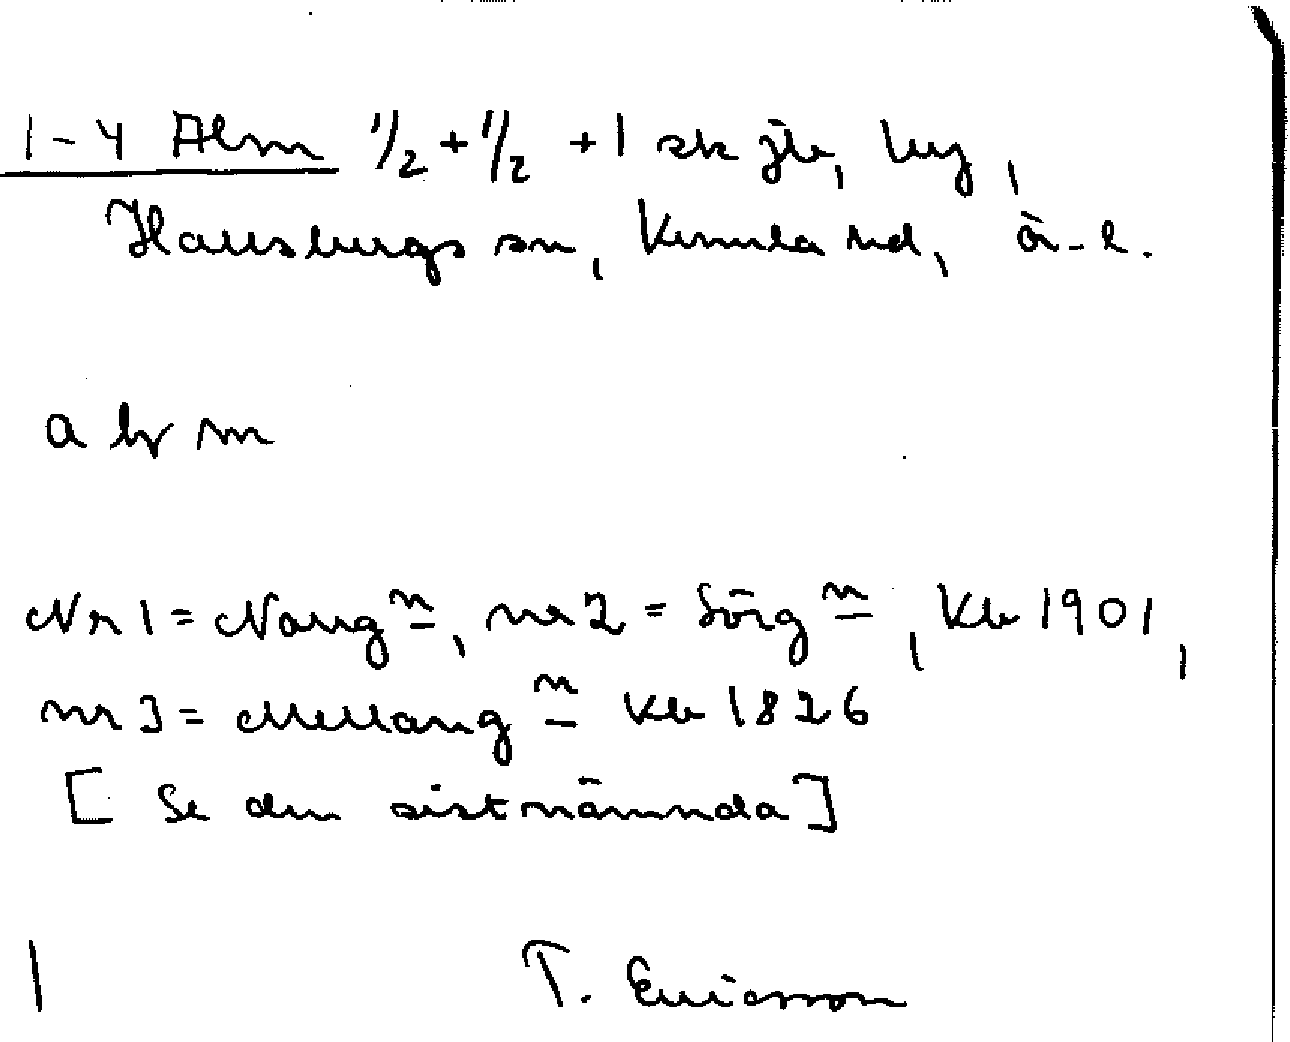 1-4 Alm 1/2 + 1/2 + 1 sk jb, by,
Hallsbergs sn, Kumla hd, Ör-l.
a l m
Nr 1 = Norrg n, nr 2 = Sörg n, Kb 1901,
nr 3 = Mellang n Kb 1826
[Se den sistnämnda]
1 T. Ericsson